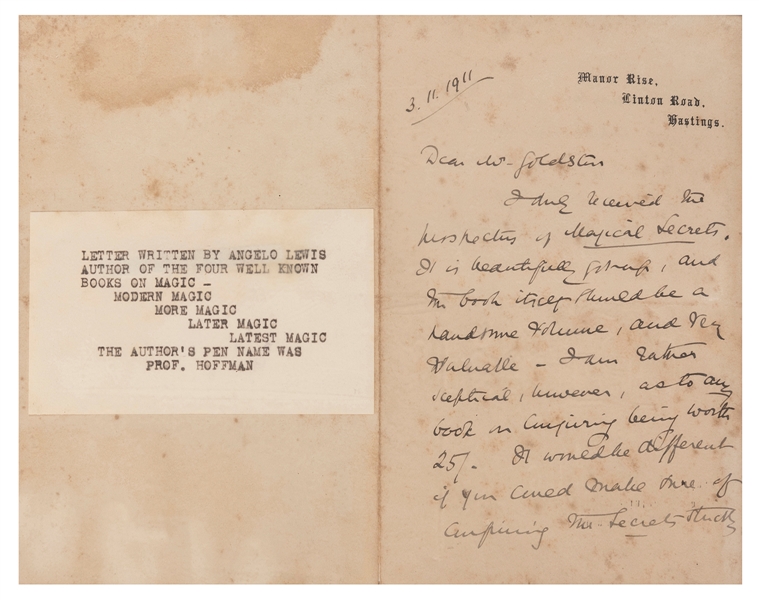 LETTER WRITTEN BY ANGELO LEWIS
AUTHOR OF THE FOUR WELL KNOWN
BOOKS ON MAGIC -
MODERN MAGIC
MORE MAGIC
LATER MAGIC
LATEST MAGIC
THE AUTHOR'S PEN NAME WAS
PROF. HOFFMAN
3.11.1911
Manor Rise,
Linton Road,
Hastings.
Dear Mr Goldston
I duly received the
prospectus of Magical Secrets.
It is beautifully got up, and
the book itself should be a
handsome volume, and very
valuable - I am rather
sceptical, however, as to any
book on conjuring being worth
25/-. It would be different
if you could make sure of
confining the secrets strictly